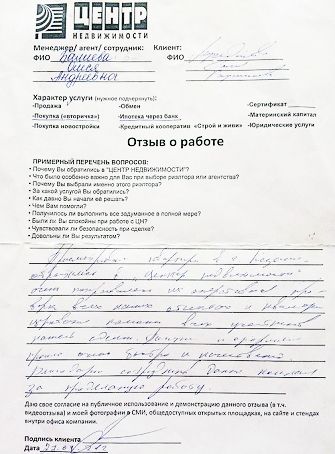 ЦЕНТР
НЕДВИЖИМОСТИ
Менеджер/ агент/ сотрудник: Клиент:
ФИО ФИО
Олеся
Андреевна
Характер услуги (нужное подчеркнуть):
-Продажа -Обмен -Сертификат
-Покупка («вторичка») -Ипотека через банк -Материнский капитал
-Покупка новостройки -Кредитный кооператив «Строй и живи» -Юридические услуги
Отзыв о работе
ПРИМЕРНЫЙ ПЕРЕЧЕНЬ ВОПРОСОВ:
• Почему Вы обратились в "ЦЕНТР НЕДВИЖИМОСТИ"?
• Что было особенно важно для Вас при выборе риэлтора или агентства?
• Почему Вы выбрали именно этого риэлтора?
• За какой услугой Вы обратились?
• Как давно Вы начали её решать?
• Чем Вам помогли?
• Получилось ли выполнить все задуманное в полной мере?
• Были ли Вы спокойны при работе с ЦН?
• Чувствовали ли безопасность при сделке?
• Довольны ли Вы результатом?
квартиры в
обратились в "Центр недвижимости"
очень понравилась их оперативность
всех наших
всех участников
нашей сделки.
прошла очень быстро и
Благодарю сотрудников
за проделанную работу.
Даю свое согласие на публичное использование и демонстрацию данного отзыва (в т.ч.
видеоотзыва) и моей фотографии в СМИ, общедоступных открытых площадках, на сайте и стендах
внутри офиса компании.
Подпись клиента
Дата